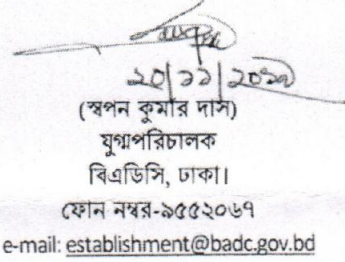 ২০|১১|২০১৯
(স্বপন কুমার দাস)
যুগ্মপরিচালক
বিএডিসি, ঢাকা।
ফোন নম্বর-৯৫৫২০৬৭
e-mail: establishment@badc.gov.bd